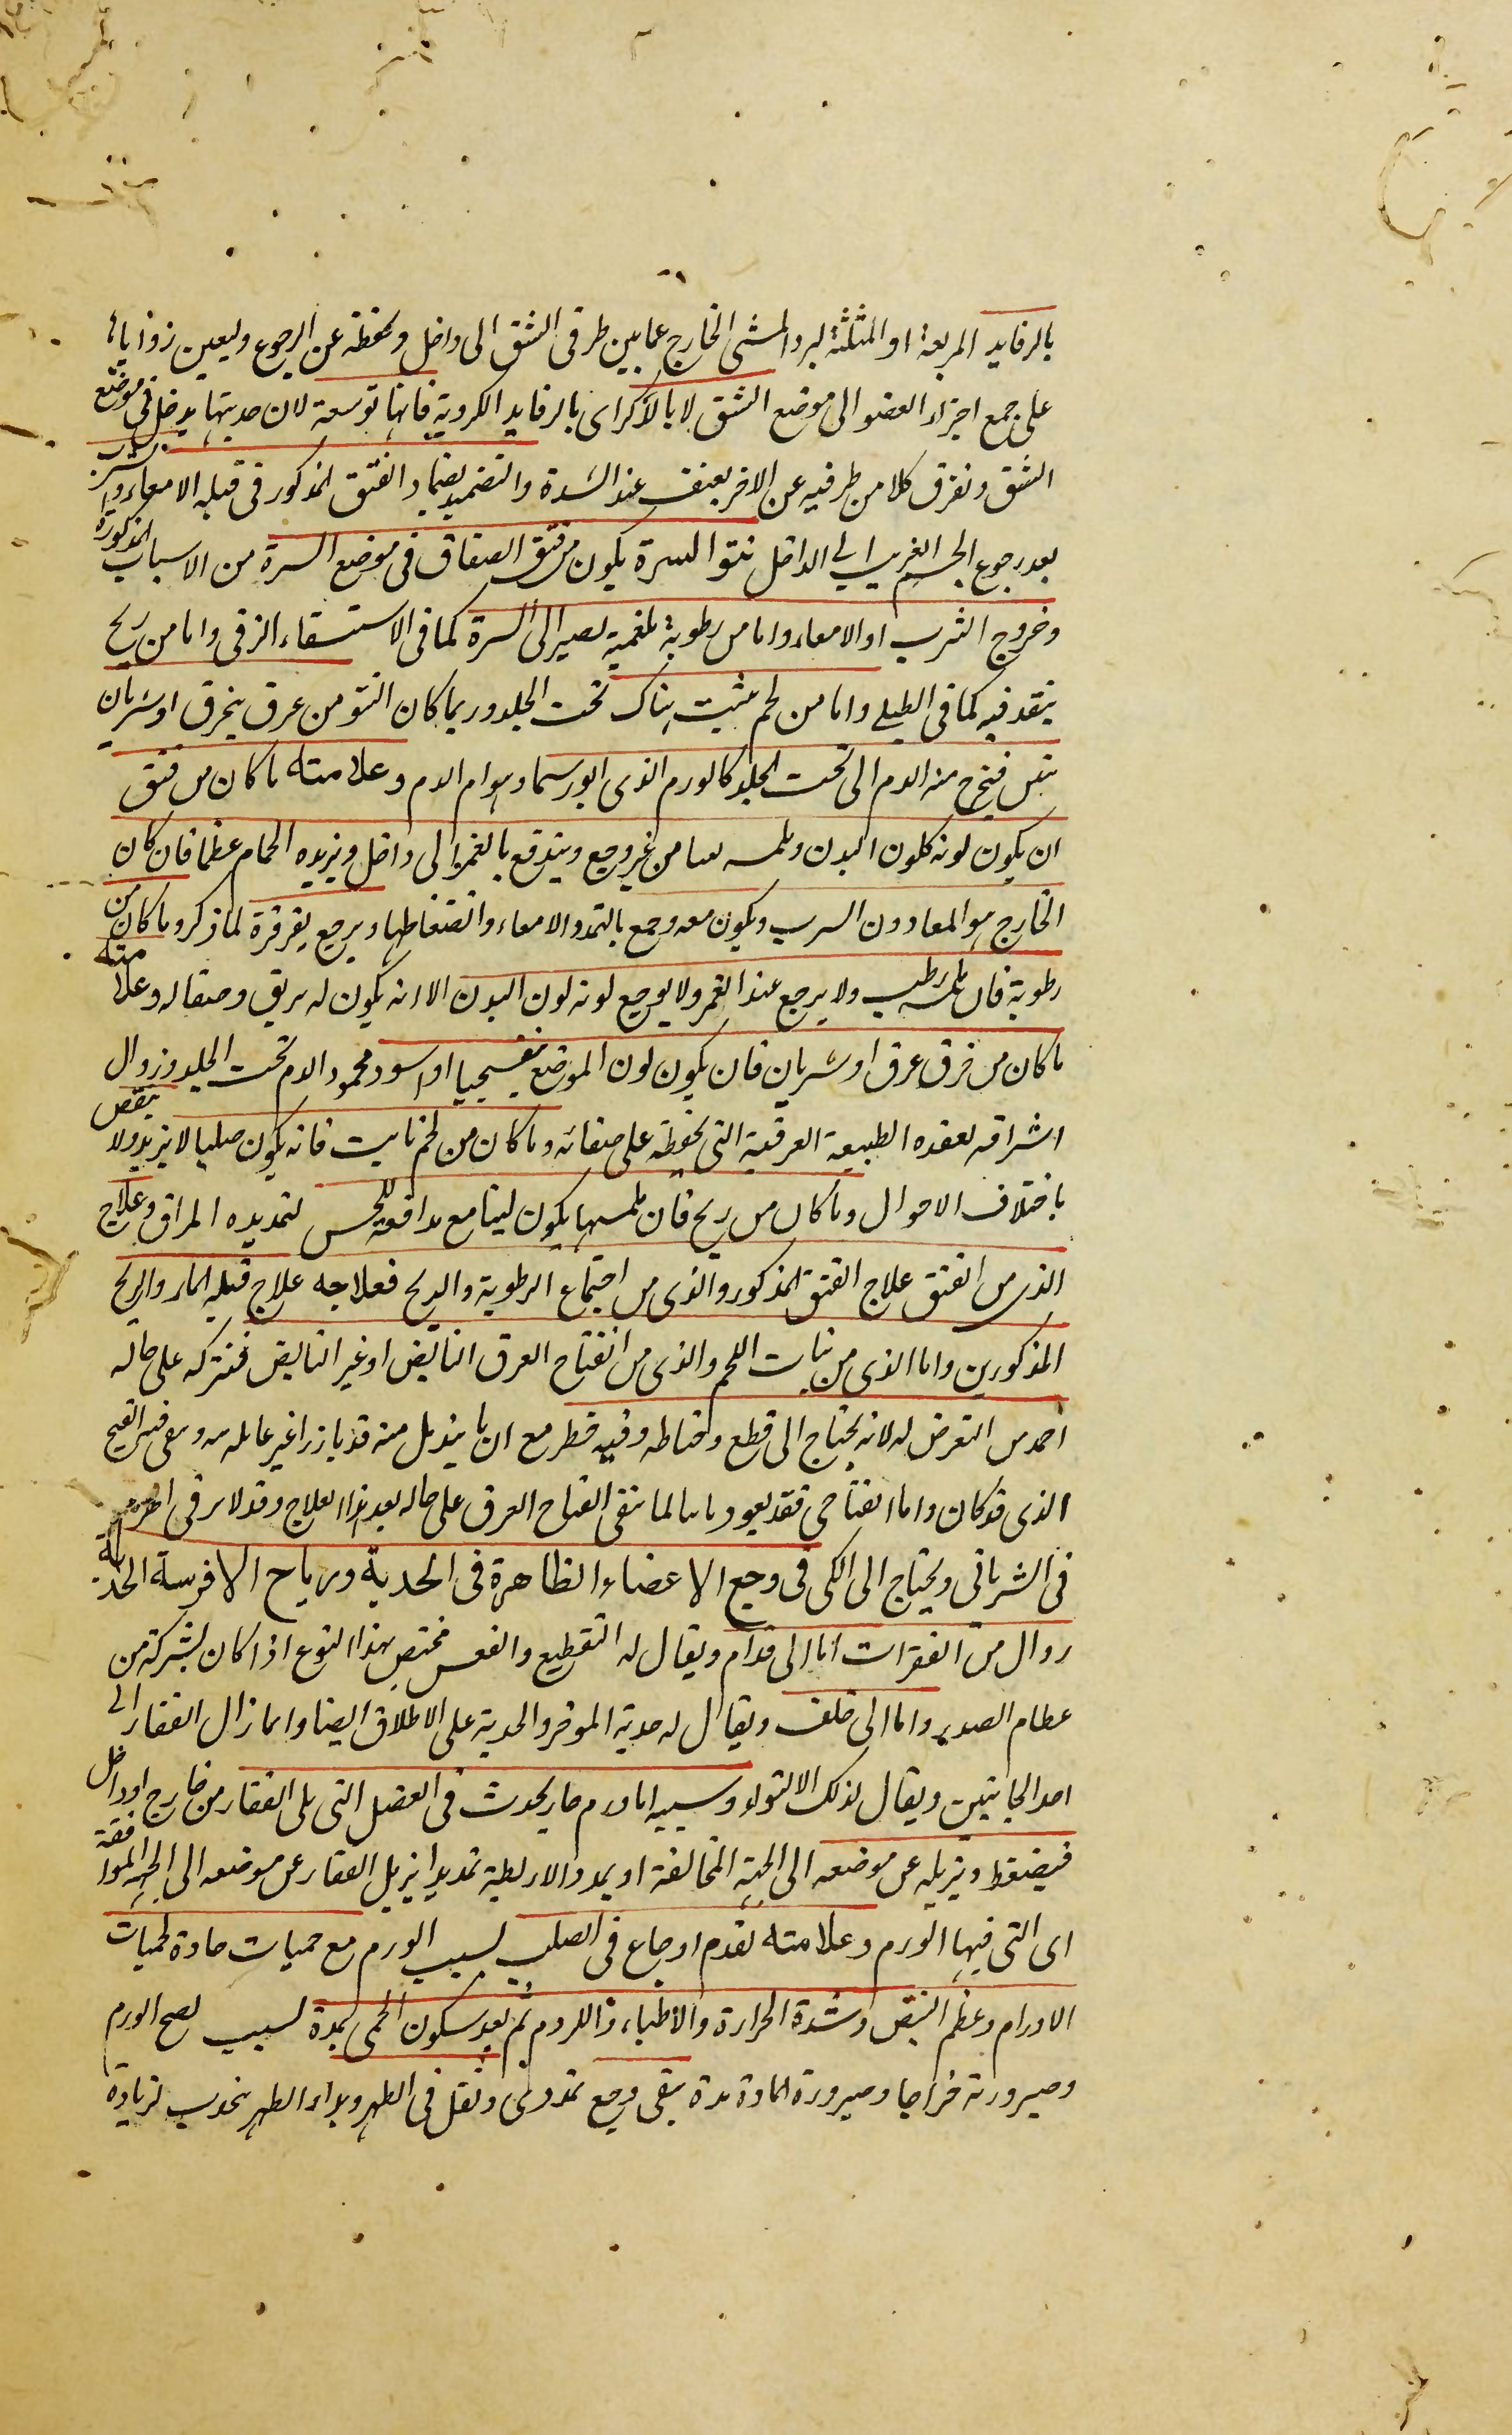 بالرفايد المربعة او المثلثة ليرد الشى الخارج عما بين طرفى الشق الى داخل وتحفظه عن الرجوع وليعين زواياها
على جمع اجزاء العضو الى موضع الشق لا بالاكراى بالرفايد الكروية فانها توسعه لان حدبتها يدخل فى موضع
الشق وتفرق كلا من طرفيه عن الاخر بعنف عند الشدة والتضميد بضماد الفتق المذكور فى قيلة الامعاء والثرب
بعد رجوع الجسم الغريب الى الداخل نتو السرة يكون من فتق الصفاق فى موضع السرة من الاسباب المذكورة
وخروج الثرب او الامعاء واما من رطوبة بلغمية يصير الى السرة كما فى الاستسقاء الزقى واما من ريح
ينفذ فيه كما فى الطبلى واما من لحم ينبت هناك تحت الجلد وربما كان النتو من عرق ينخرق او شريان
فيخرج منه الدم الى تحت الجلد كالورم الذى ابورسما وهو ام الدم وعلامته ما كان من فتق
ان يكون لونه كلون البدن وملمسه لينا من غير وجع ويندفع بالغمز الى داخل ويزيده الحمام عظما فان كان
الخارج هو المعا دون الثرب ويكون معه وجع بالتمدد الامعاء وانضغاطها ويرجع بقرقرة لما ذكر وما كان من
رطوبة فان ملمسه رطب ولا يرجع عند الغمز ولا يوجع لونه لون البدن الا انه يكون له بريق وصقالة وعلامته
ما كان من خرق عرق او شريان فان يكون لون الموضع بنفسجيا او اسود لجمود الدم تحت الجلد وزوال
اشراقه لفقده الطبيعة العرقية التى تحفظه على صفائه وما كان من لحم نابت فانه يكون صلبا لا يزيد ولا ينقص
باختلاف الاحوال وما كان من ريح فان ملمسها يكون لينا مع مدافعة للجس لتمديده المراق وعلاج
الذى من الفتق علاج الفتق المذكور والذى من اجتماع الرطوبة والريح فعلاجه علاج قيلة الماء والريح
المذكورين واما الذى من نبات اللحم والذى من انفتاح العرق النابض او غير النابض فنتركه على حاله
احمد من التعرض له لانه يحتاج الى قطع وخياطه وفيه خطر مع ان ما يندمل منه قد
الذى قد كان واما انفتاحى فقد يعود انفتاح العرق على حاله بعد هذا العلاج وقد لا يرقى الدم
فى الشريانى ويحتاج الى الكى فى وجع الاعضاء الظاهرة فى الحدبة ورياح الافرسة الحدبة
زوال من الفقرات اما الى قدام ويقال له التقطيع والقعس مختص بهذا النوع اذا كان بشركة من
عظام الصدر واما الى خلف ويقال له حدبة الموخر والحدبة على الاطلاق ايضا واما زال الفقار الى
احد الجانبين ويقال لذلك الالتواء وسببه اما ورم حار يحدث فى العضل التى يلى الفقار من خارج او داخل
فيضغط ويزيله عن موضعه الى الجهة المخالفة او يمدد الاربطة تمديدا يزيل الفقار عن موضعه الى الجهة الموافقة
اى التى فيها الورم وعلامته تقدم اوجاع فى الصلب لسبب الورم مع حميات حادة لحميات
الاورام وعظم النبض وشدة الحرارة ثم بعد سكون الحمى بمدة لسبب نضج الورم
وصيرورته خراجا وصيرورة المادة مدة يبقى وجع تمددى وثقل فى الظهر وبداء الظهر يتحدب لزيادة